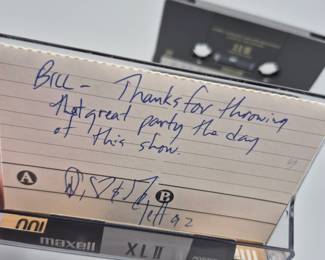 BILL - Thanks for throwing
that great party the day
of this show.
A
B
Jeff 92
100
maxell XLII